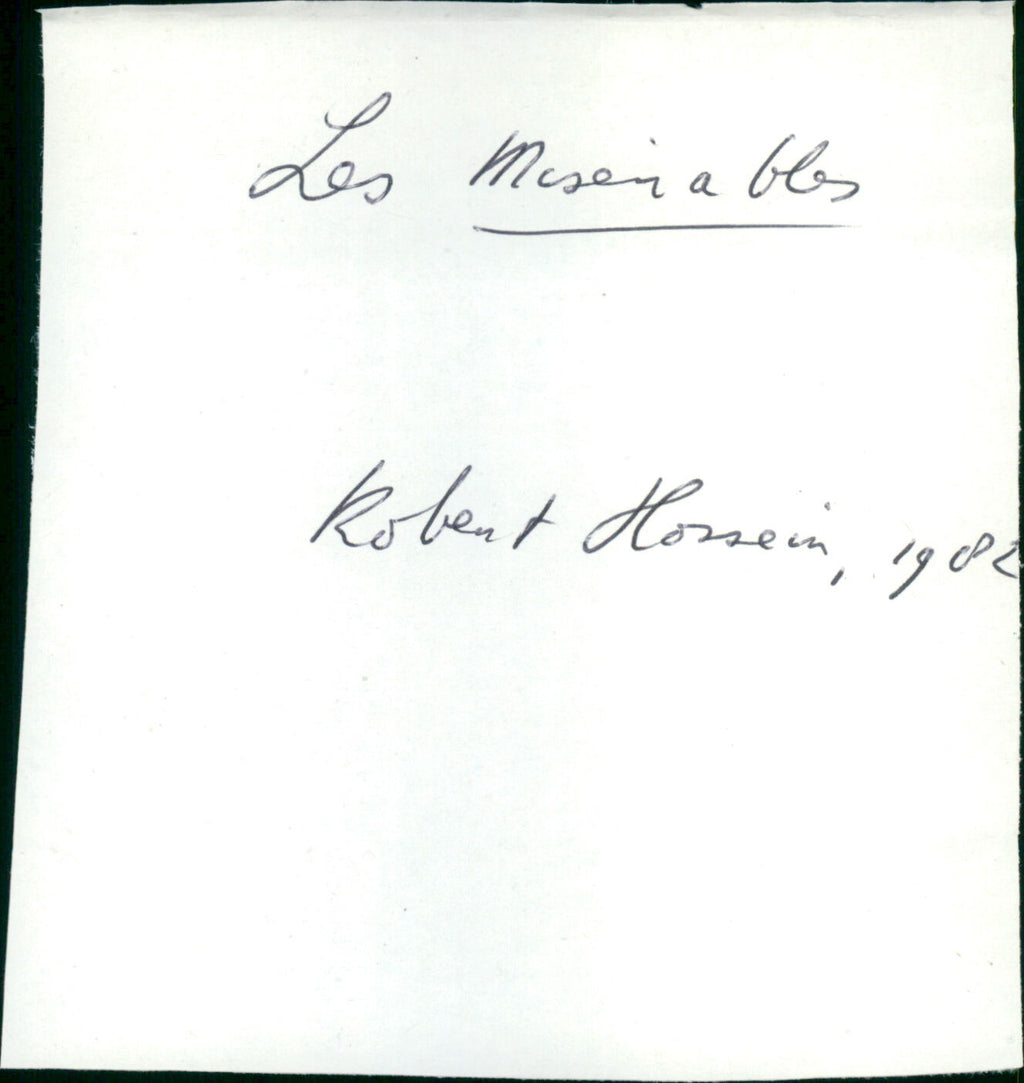 Les Miserables
Robert Hossein, 1982